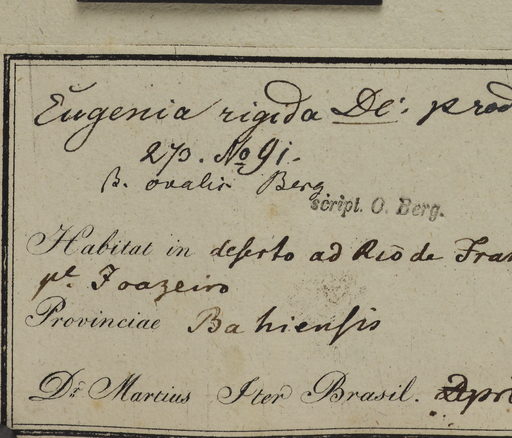 Eugenia rigida DC. prod
273. No 91.
β. ovalis Berg
script. O. Berg.
Habitat in deserto ad Rio de Fran
pe. Joazeiro
Provinciae Bahiensis
Dr. Martius Iter Brasil. Apri